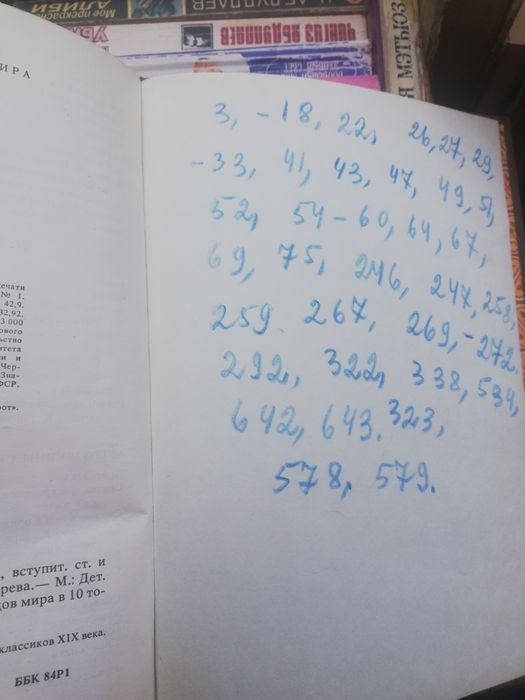 Мое прекрасное
АЛИБИ
ЧИНГИЗ АБДУЛЛАЕВ
МЭТЬЮЗ
ИРА
3, -18, 22, 26, 27, 29,
-33, 41, 43, 47, 49, 51,
52, 54-60, 64, 67,
69, 75, 246, 247, 258,
259. 267, 269, -272.
292, 322, 338, 534,
642, 643. 323,
578, 579.
ечати
№ 1.
42,9.
32,92.
3 000
ового
ьство
итета
и и
Чер-
Зна-
ФСР.
рот».
, вступит. ст. и
рева.— М.: Дет.
дов мира в 10 то-
классиков XIX века.
ББК 84Р1